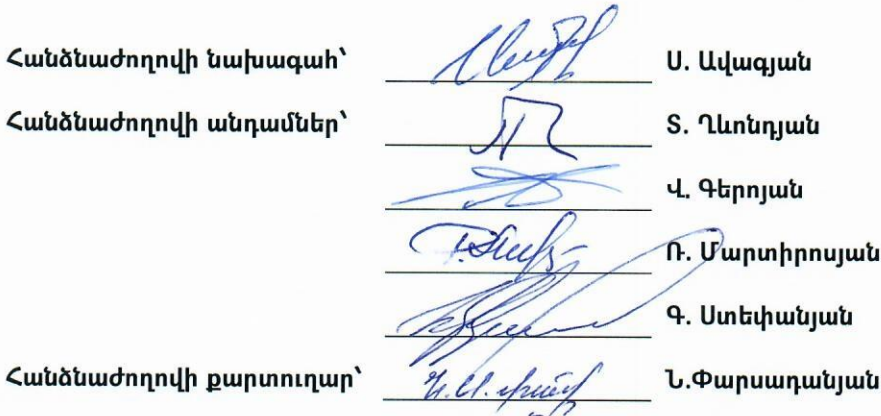 Հանձնաժողովի նախագահ՝ Ս. Ավագյան
Հանձնաժողովի անդամներ՝ Տ. Ղևոնդյան
Վ. Գերոյան
Ռ. Մարտիրոսյան
Գ. Ստեփանյան
Հանձնաժողովի քարտուղար՝ Ն.Փարսադանյան